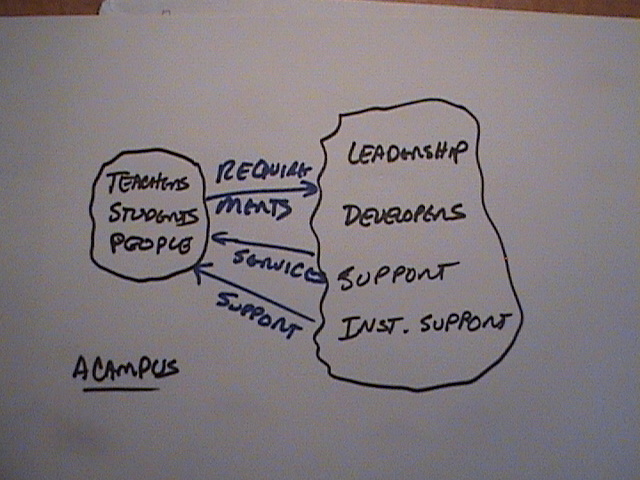 TEACHERS
STUDENTS
PEOPLE
REQUIRE
MENTS
SERVICES
SUPPORT
LEADERSHIP
DEVELOPERS
SUPPORT
INST. SUPPORT
A CAMPUS